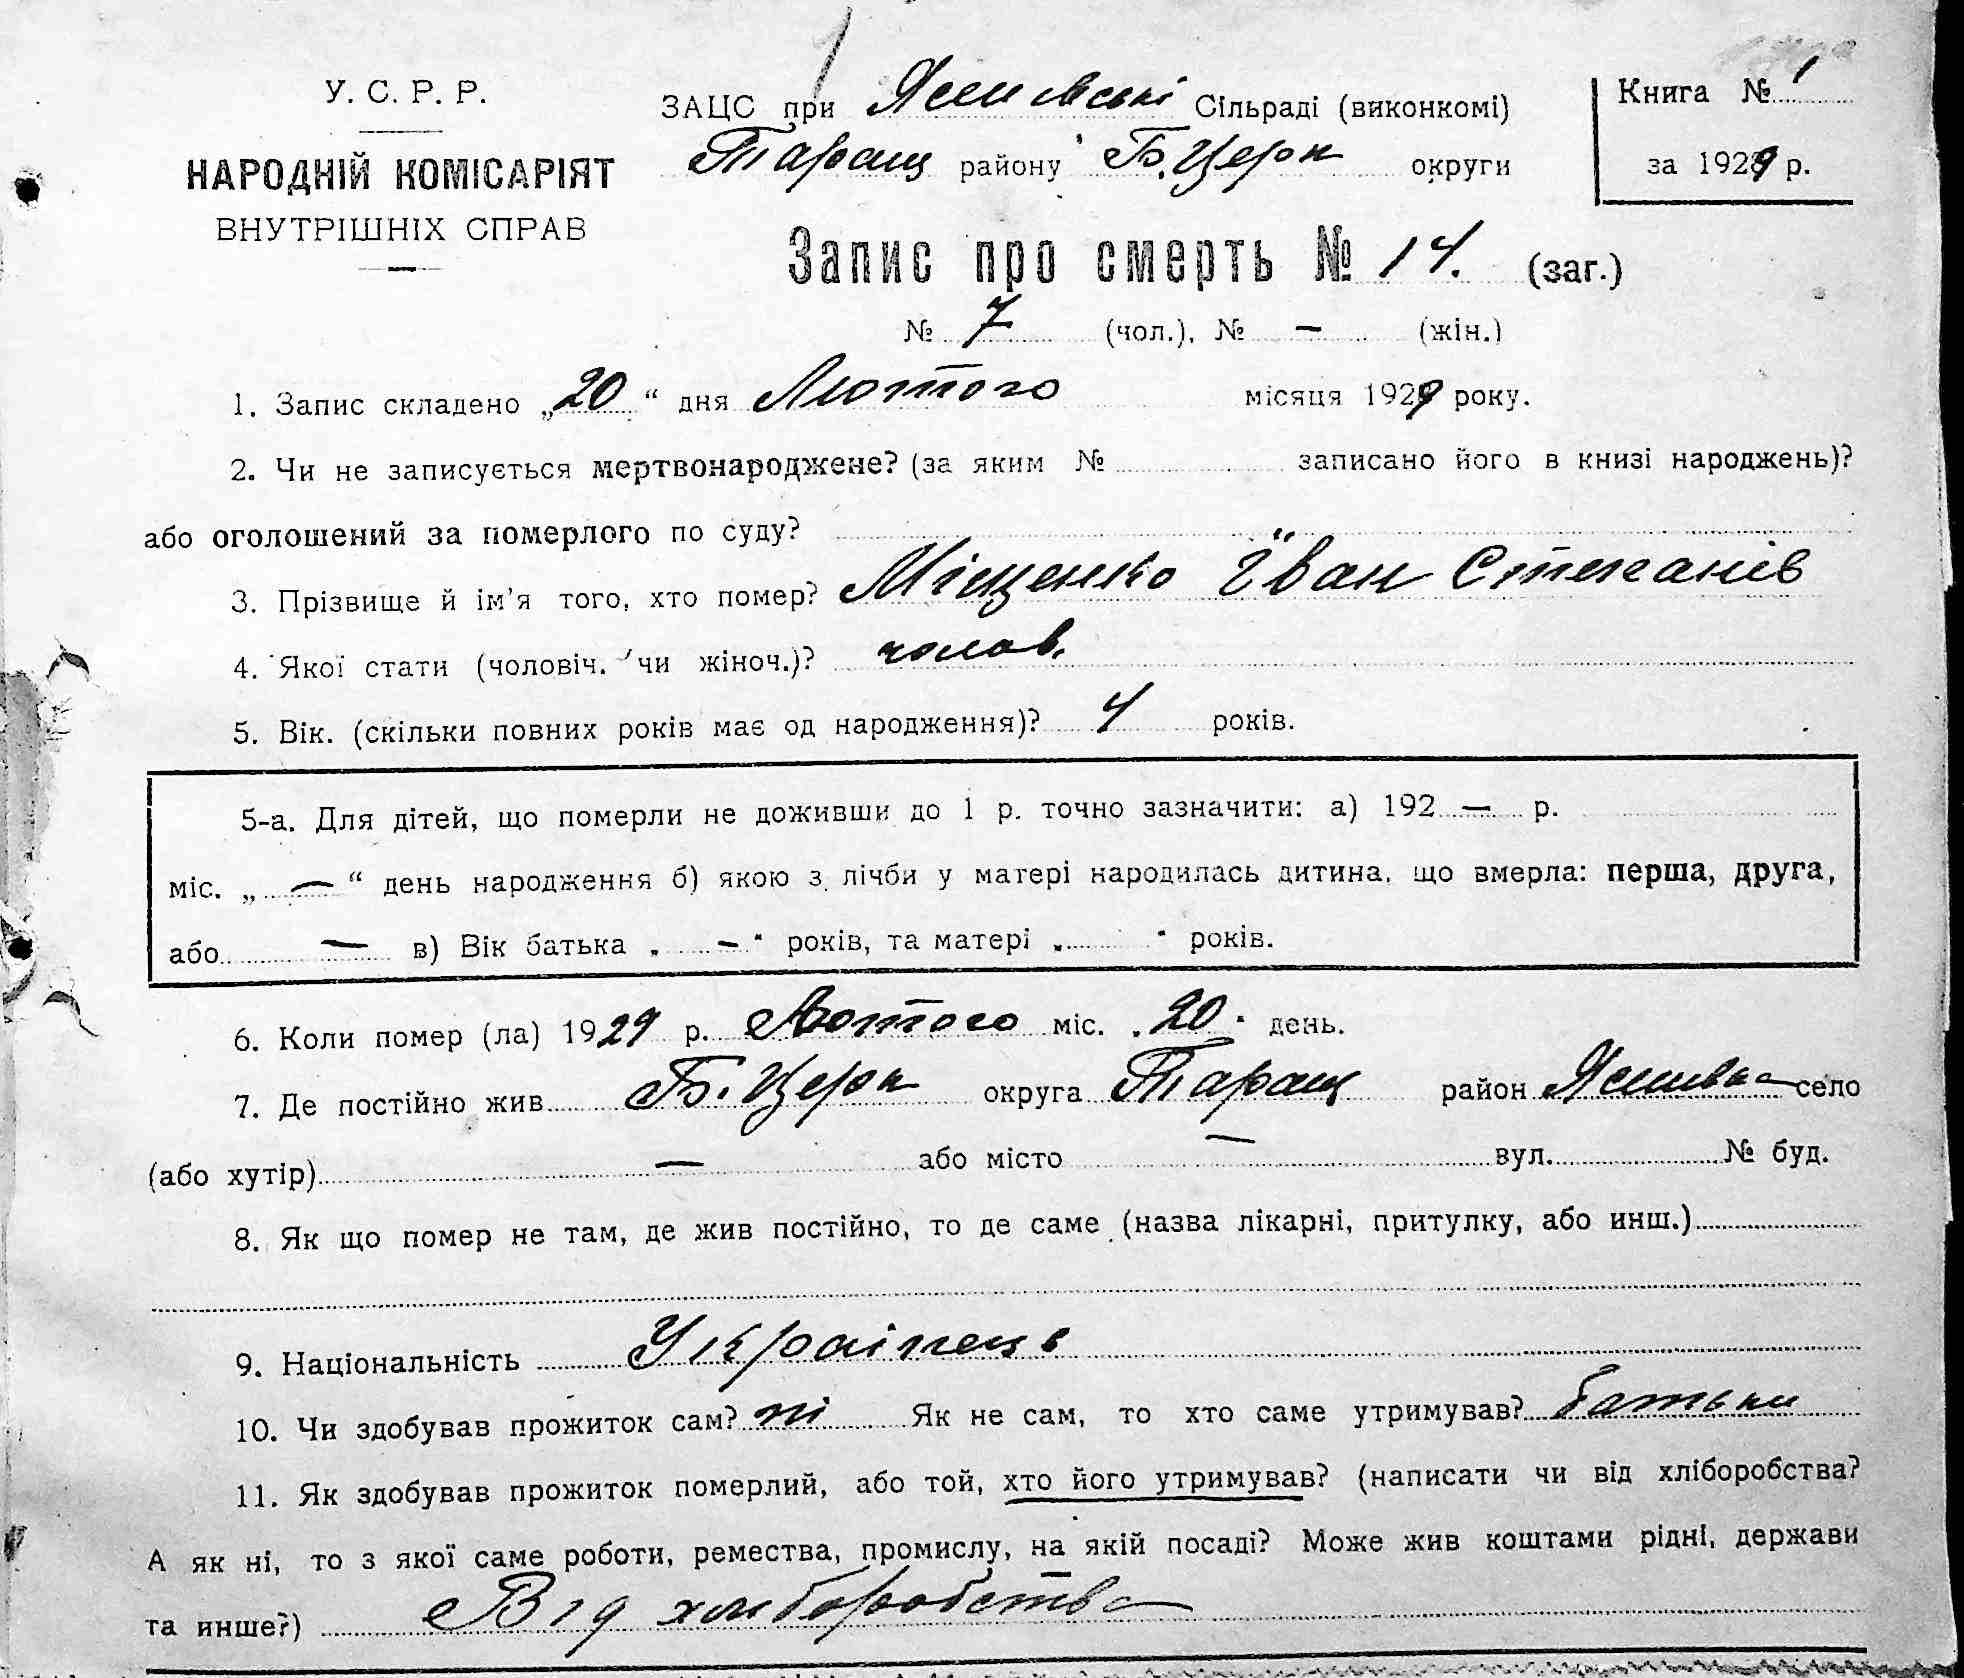 У. С. Р. Р.
НАРОДНІЙ КОМІСАРІЯТ
ВНУТРІШНІХ СПРАВ
ЗАЦС при Ясинівські Сільраді (виконкомі)
Таращ району Б. Церк округи
Книга № 1
за 1929 р.
Запис про смерть № 14. (заг.)
№ 7 (чол.), № — (жін.)
1. Запис складено „20“ дня Лютого місяця 1929 року.
2. Чи не записується мертвонароджене? (за яким № записано його в книзі народжень)?
або оголошений за померлого по суду?
3. Прізвище й ім'я того, хто помер? Міщенко Іван Степанів
4. Якої стати (чоловіч. чи жіноч.)? чолов.
5. Вік. (скільки повних років має од народження)? 4 років.
5-а. Для дітей, що померли не доживши до 1 р. точно зазначити: а) 192 — р.
міс. „ — “ день народження б) якою з лічби у матері народилась дитина, що вмерла: перша, друга,
або — в) Вік батька „ — “ років, та матері „ “ років.
6. Коли помер (ла) 1929 р. Лютого міс. „20“ день.
7. Де постійно жив Б. Церк округа Таращ район Ясинівка село
(або хутір) — або місто — вул. № буд.
8. Як що помер не там, де жив постійно, то де саме (назва лікарні, притулку, або инш.)
9. Національність Українець
10. Чи здобував прожиток сам? ні Як не сам, то хто саме утримував? батьки
11. Як здобував прожиток померлий, або той, хто його утримував? (написати чи від хліборобства?
А як ні, то з якої саме роботи, ремества, промислу, на якій посаді? Може жив коштами рідні, держави
та инше?) Від хліборобства